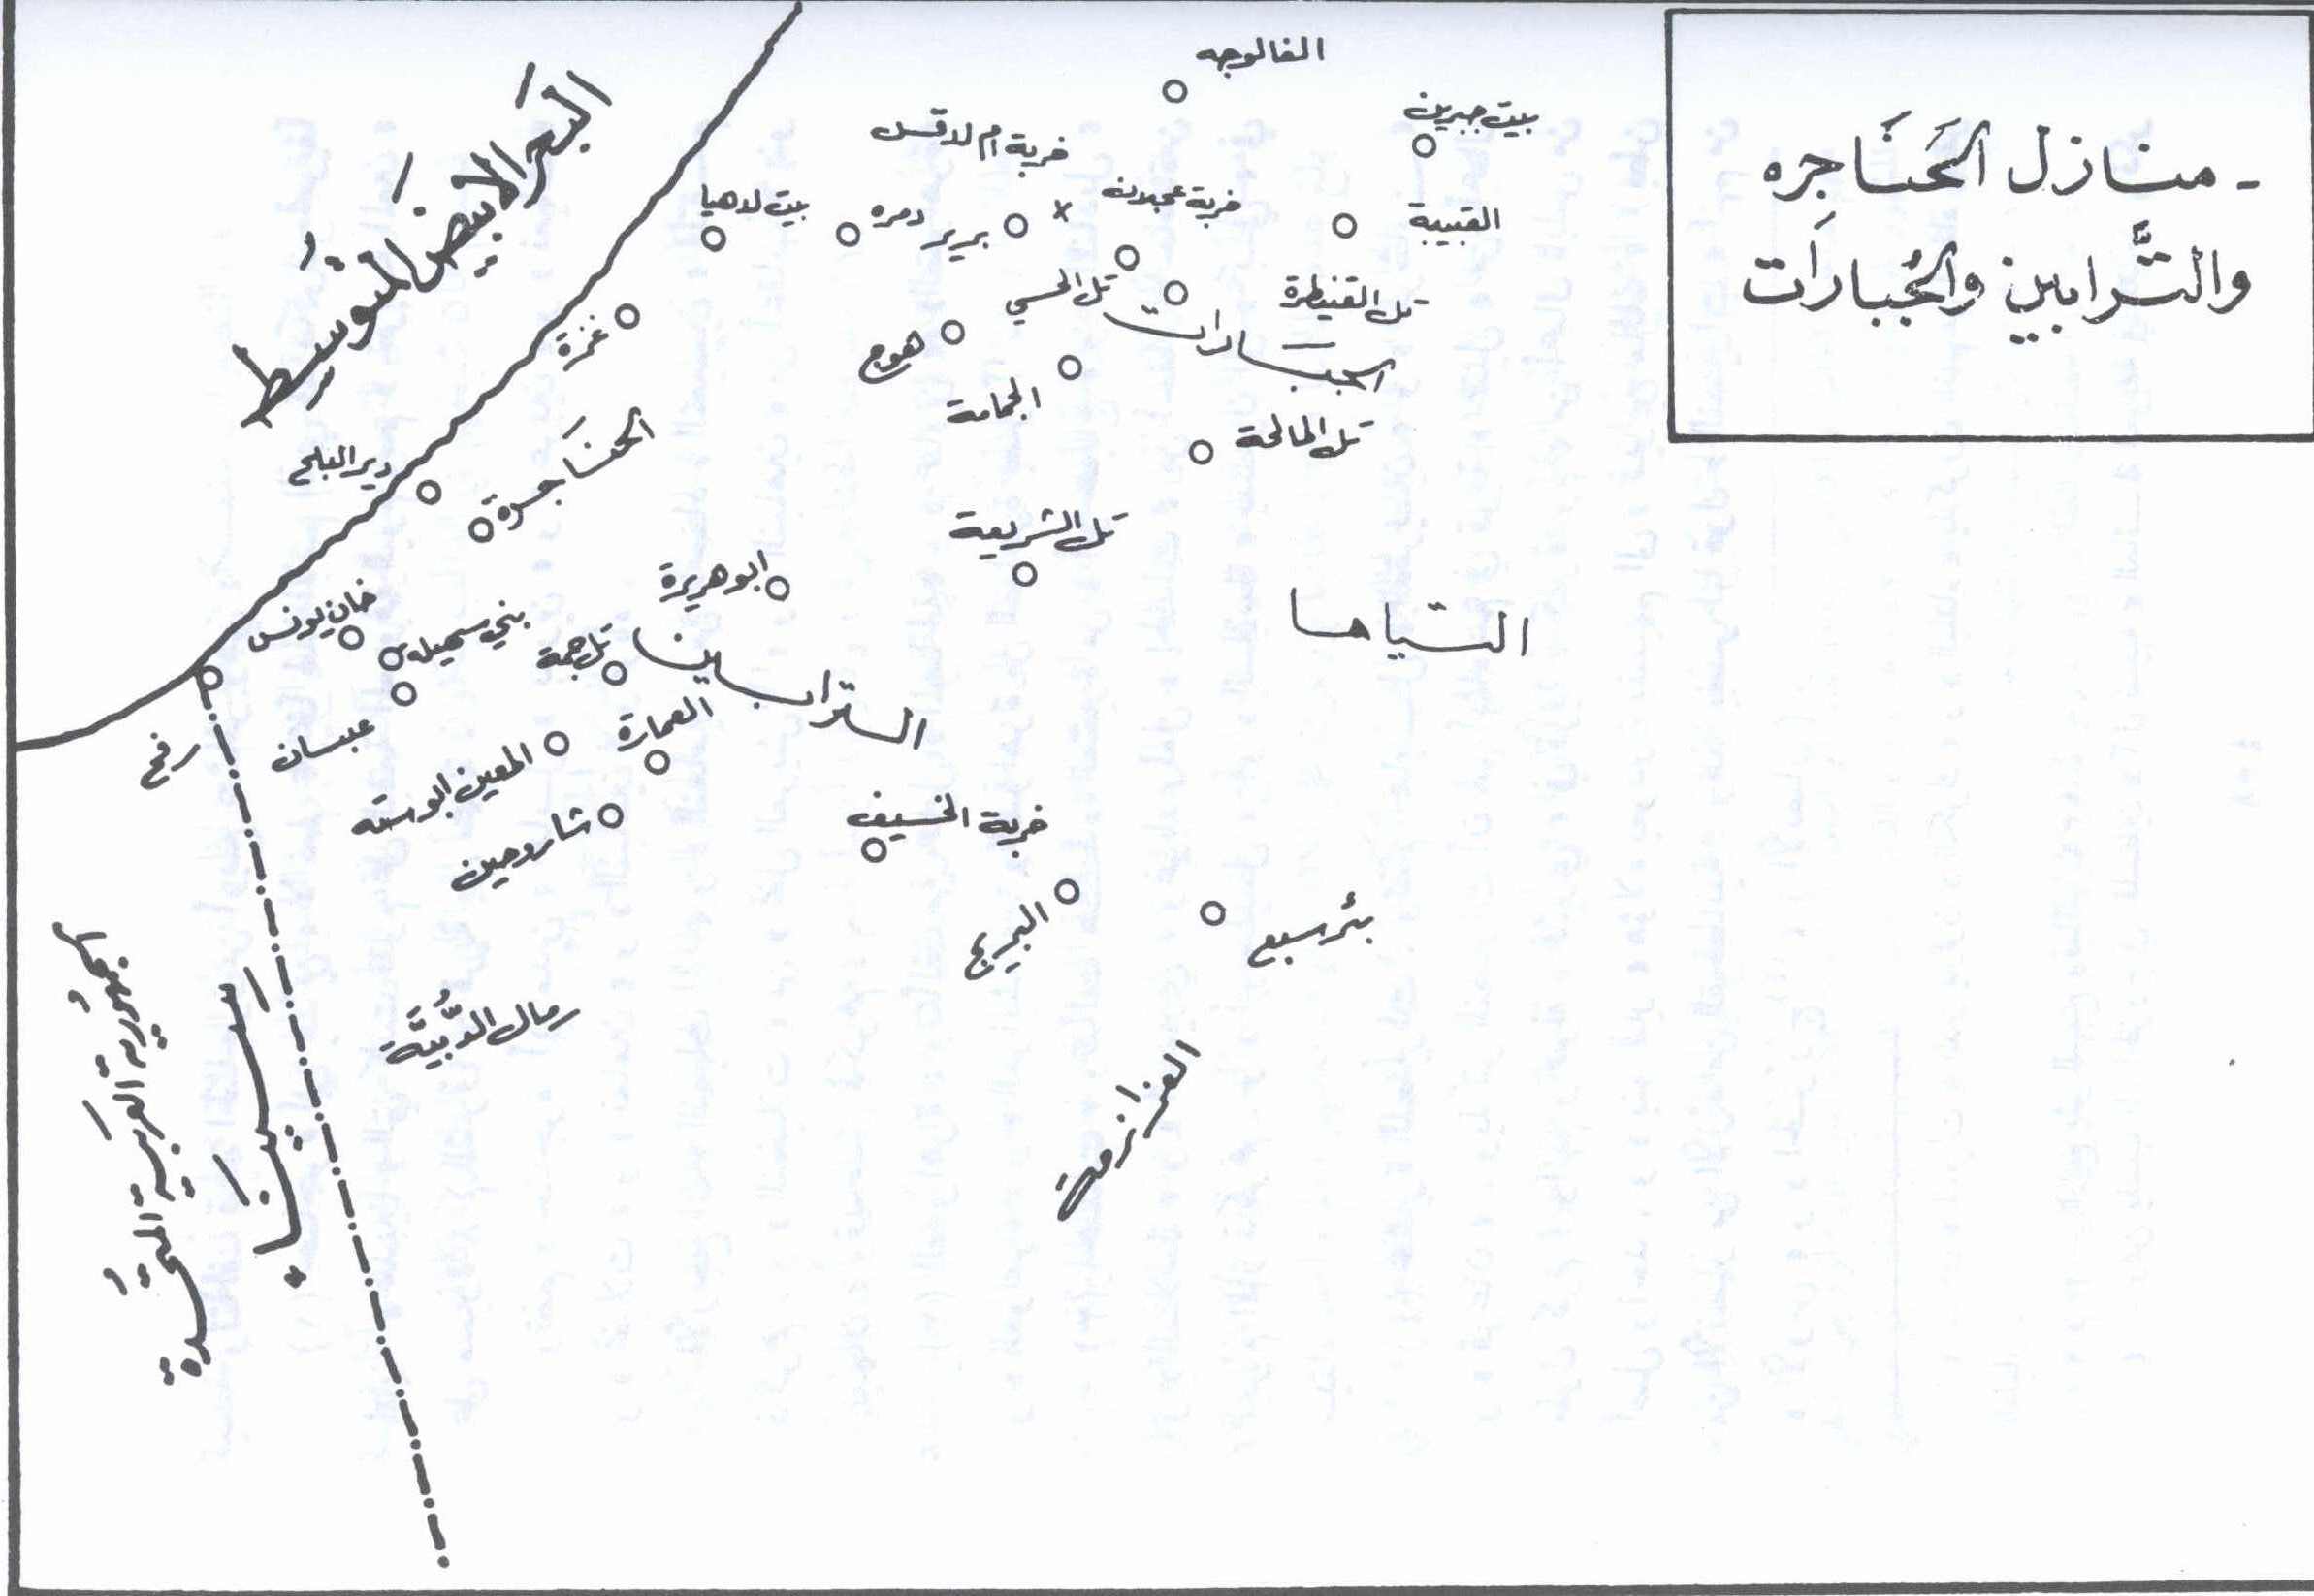 - منازل الحَنَاجِره
والتَّرابين والجُبارَات
الفالوجه
بيت جبرين
خربة ام لاقس
خربة عجلان
القبيبة
بيت لاهيا
دمره
برير
x
تل الحسي
تل القنيطرة
الجبَارات
غزة
هوج
الجمامة
تل المالحة
البَحر الأبيَض المتُوسِط
دير البلح
الحنَاجرة
تل الشريعة
ابو هريرة
السّياها
خان يونس
بني سهيله
تل جمة
الترابين
العمارة
رفح
عبسان
المعين ابوسته
شاروحين
خربة الخسيف
البريج
بئر سبع
رمال الدُّبيَّة
العزازمه
سَينَاء
الجمهُورية العَربية المتحُدة